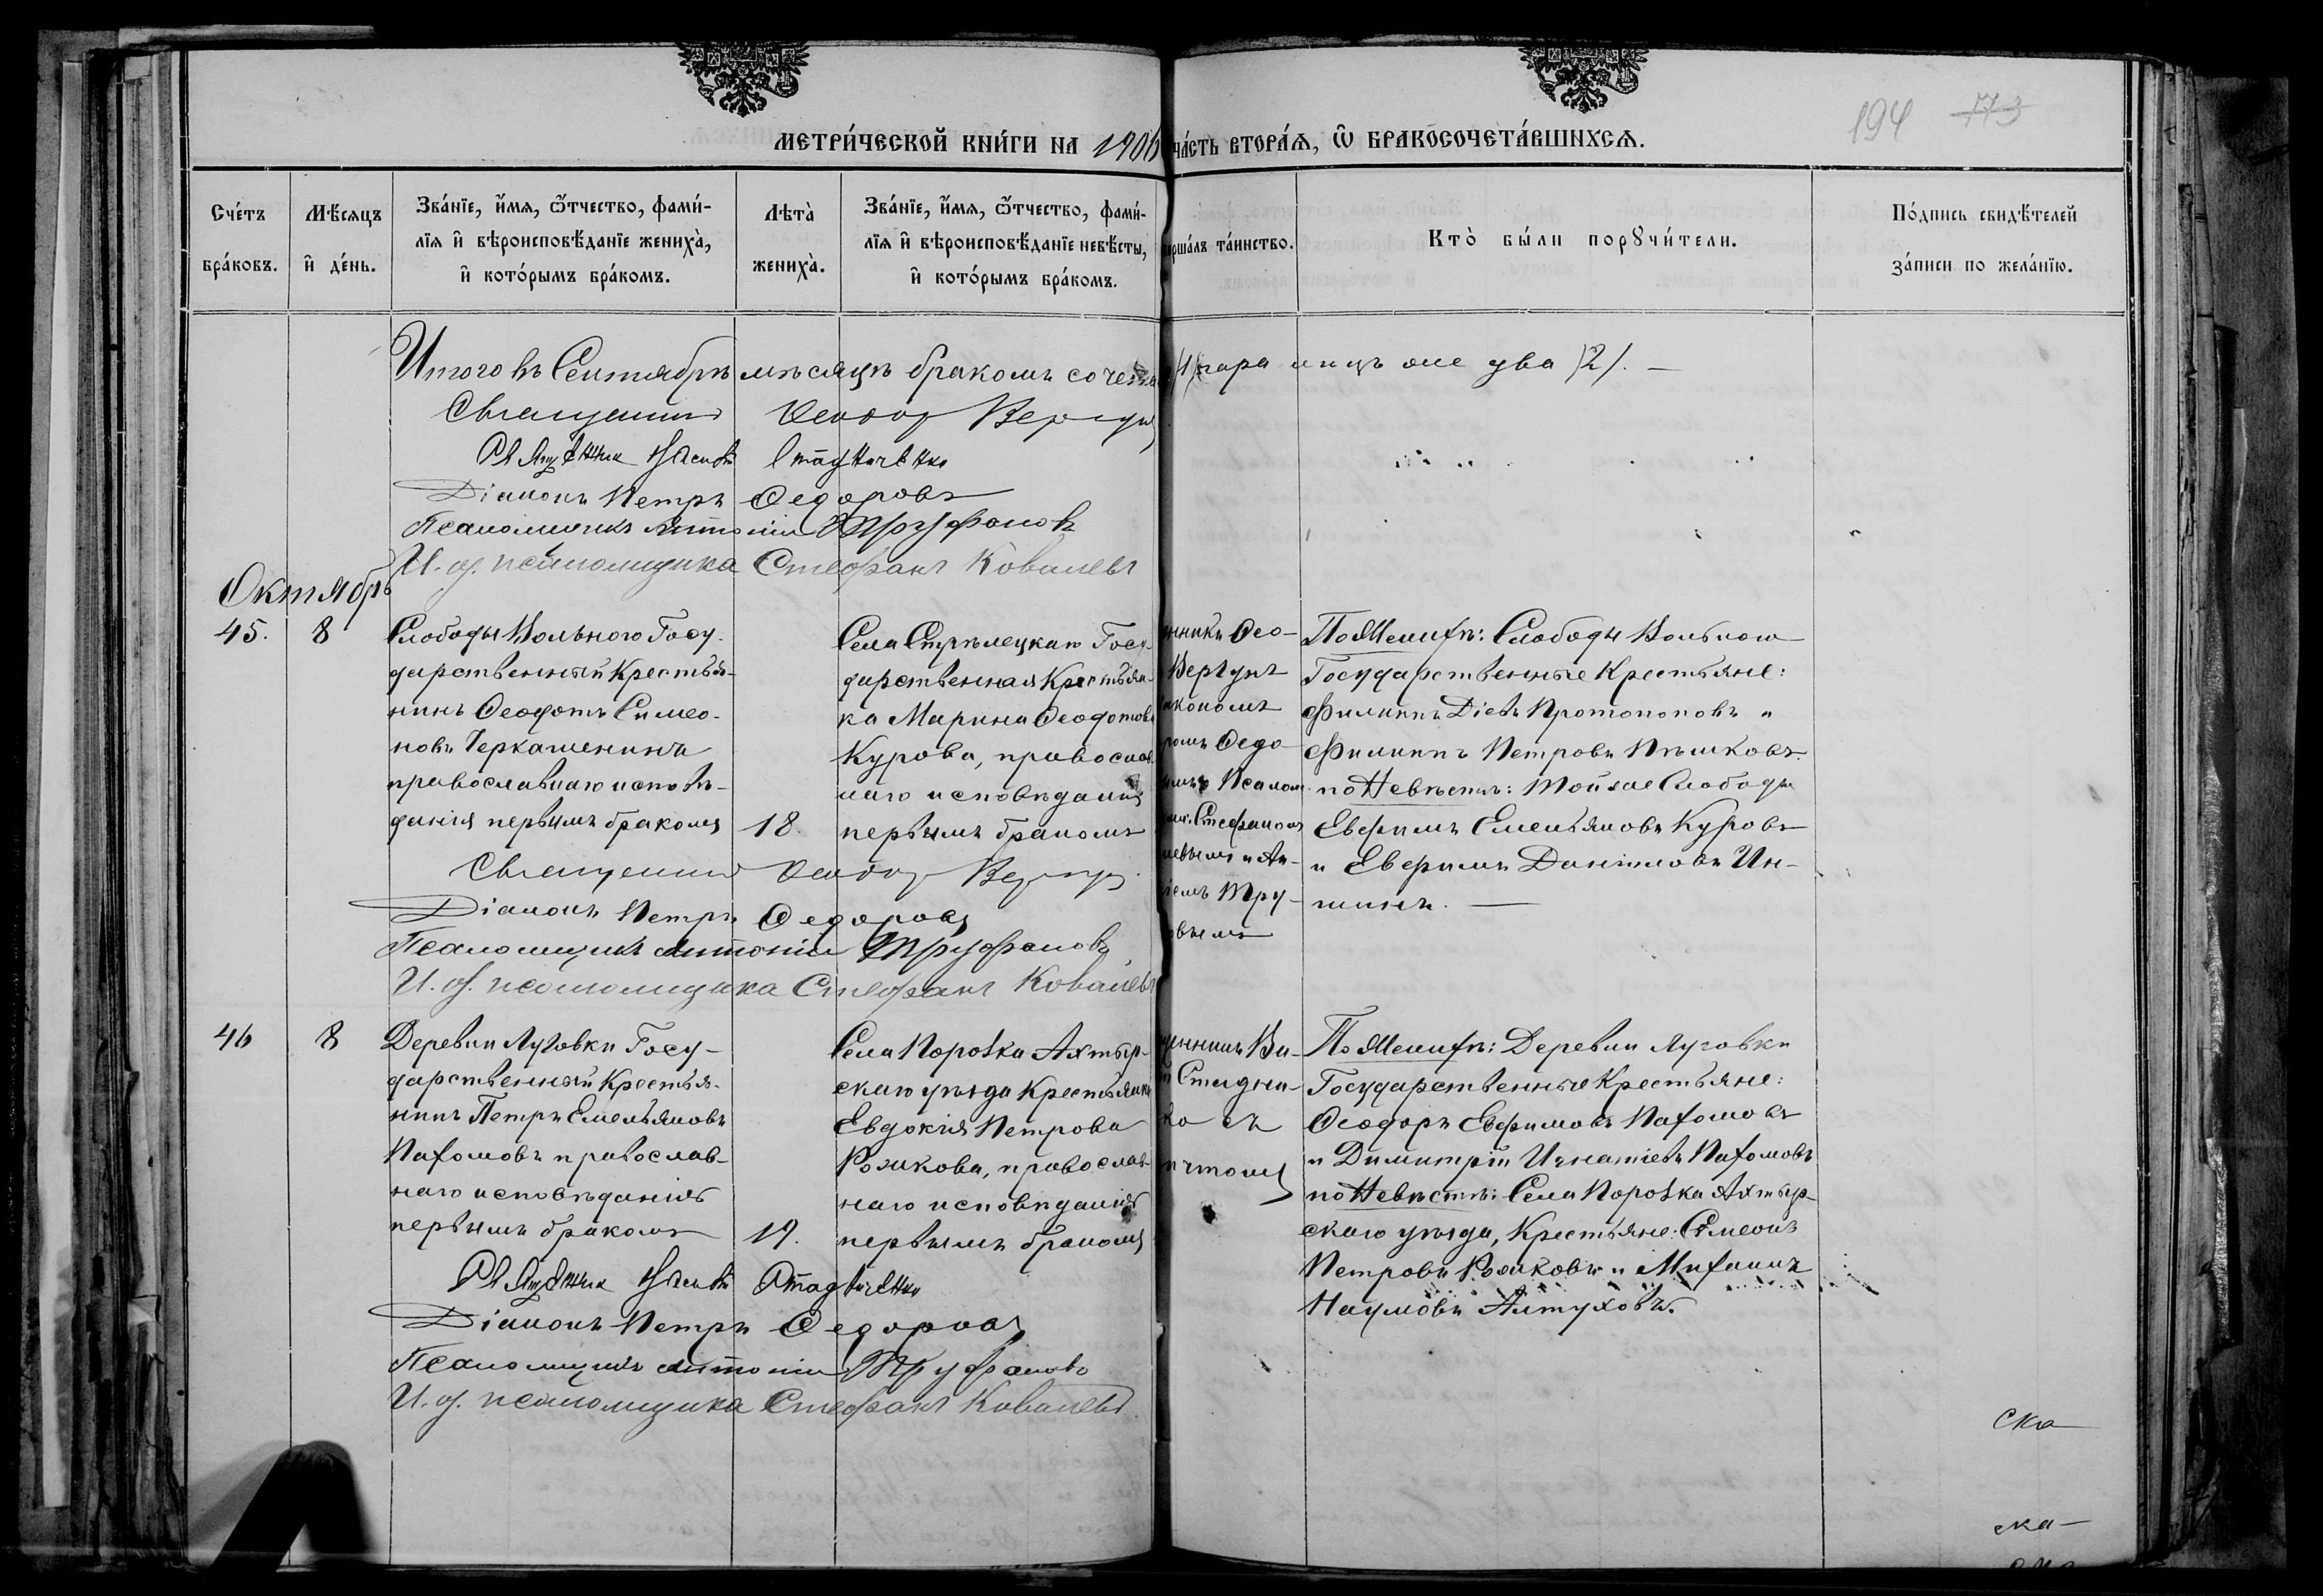 194 173
МЕТРИ́ЧЕСКОЙ КНИ́ГИ НА 1906
ЧА́СТЬ ВТОРА́Ѧ, Ѽ БРАКОСОЧЕТА́ВШИХСѦ.
Сче́тъ бра́ковъ.
Мѣ́сѧцъ и҆ де́нь.
Зва́нїе, и҆́мѧ, ѻ҆́тчество, фами́-
лїѧ и҆ вѣроисповѣ́данїе жениха̀,
и҆ кото́рымъ бра́комъ.
Лѣта̀ жениха̀.
Зва́нїе, и҆́мѧ, ѻ҆́тчество, фами́-
лїѧ и҆ вѣроисповѣ́данїе невѣ́сты,
и҆ кото́рымъ бра́комъ.
ершалъ та́инство.
Кто̀ бы́ли порꙋчи́тели.
По́дпись свидѣ́телей
за́писи по жела́нїю.
Итого въ Сентябрѣ мѣсяцѣ бракомъ сочета
/1/ пара лицъ же два /2/. —
Священник Ѳеодор Вергун
Священник Василій Стадниченко
Діаконъ Петръ Ѳедоровъ
Псаломщикъ Антоній Труфановъ
И. об. псаломщика Стефанъ Ковалевъ
Октябрь
45. 8
Слободы Вольного Госу-
дарственный Крестья-
нинъ Ѳеодотъ Симео-
новъ Черкашенинъ
православнаго исповѣ-
данія первымъ бракомъ
18.
Села Стрѣлецкаго Госу-
дарственная Крестьян-
ка Марина Ѳеодотова
Курова, православ-
наго исповѣданія
первымъ бракомъ
нникъ Ѳео-
Вергунъ
акономъ
ромъ Ѳедо
ымъ Псалом
Стефаномъ
левымъ и Ан-
іемъ Тру-
овымъ
По Женихѣ: Слободы Вольного
Государственные Крестьяне:
Филиппъ Діевъ Протопоповъ и
Филиппъ Петровъ Пѣшковъ.
по Невѣстѣ: Той же Слободы
Евфимъ Емельяновъ Куровъ
и Евфимъ Даніиловъ Ин-
шинъ. —
Священник Ѳеодор Вергун
Діаконъ Петръ Ѳедоровъ
Псаломщикъ Антоній Труфановъ
И. об. псаломщика Стефанъ Ковалевъ
46 8
Деревни Луговки Госу-
дарственный Крестья-
нинъ Петръ Емельяновъ
Пахомовъ православ-
наго исповѣданія
первымъ бракомъ
19.
Села Порозка Ахтыр-
скаго уѣзда Крестьянка
Евдокія Петрова
Рожкова, православ-
наго исповѣданія
первымъ бракомъ
щенникъ Ва-
й Стадни-
ко съ
ичтомъ
По Женихѣ: Деревни Луговки
Государственные Крестьяне:
Ѳеодоръ Евфимовъ Пахомовъ
и Димитрій Игнатіевъ Пахомовъ
по Невѣстѣ: Села Порозка Ахтыр-
скаго уѣзда, Крестьяне: Симеонъ
Петровъ Рожковъ и Михаилъ
Наумовъ Алтуховъ.
Священник Василій Стадниченко
Діаконъ Петръ Ѳедоровъ
Псаломщикъ Антоній Труфановъ
И. об. псаломщика Стефанъ Ковалевъ
ска
ска-